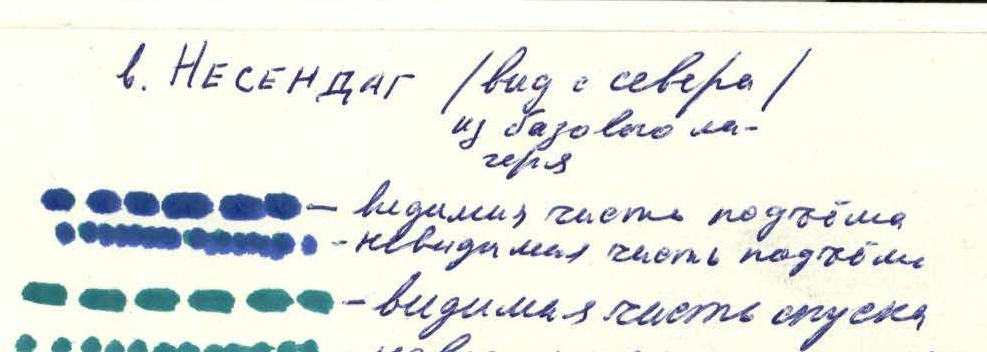 в. НЕСЕНДАГ /вид с севера/
из базового ла-
геря
— видимая часть подъёма
- невидимая часть подъёма
— видимая часть спуска